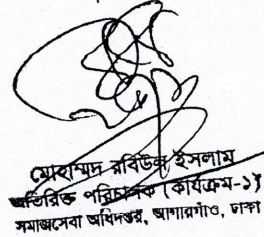 মোহাম্মদ রবিউল ইসলাম
অতিরিক্ত পরিচালক (কার্যক্রম-১)
সমাজসেবা অধিদপ্তর, আগারগাঁও, ঢাকা